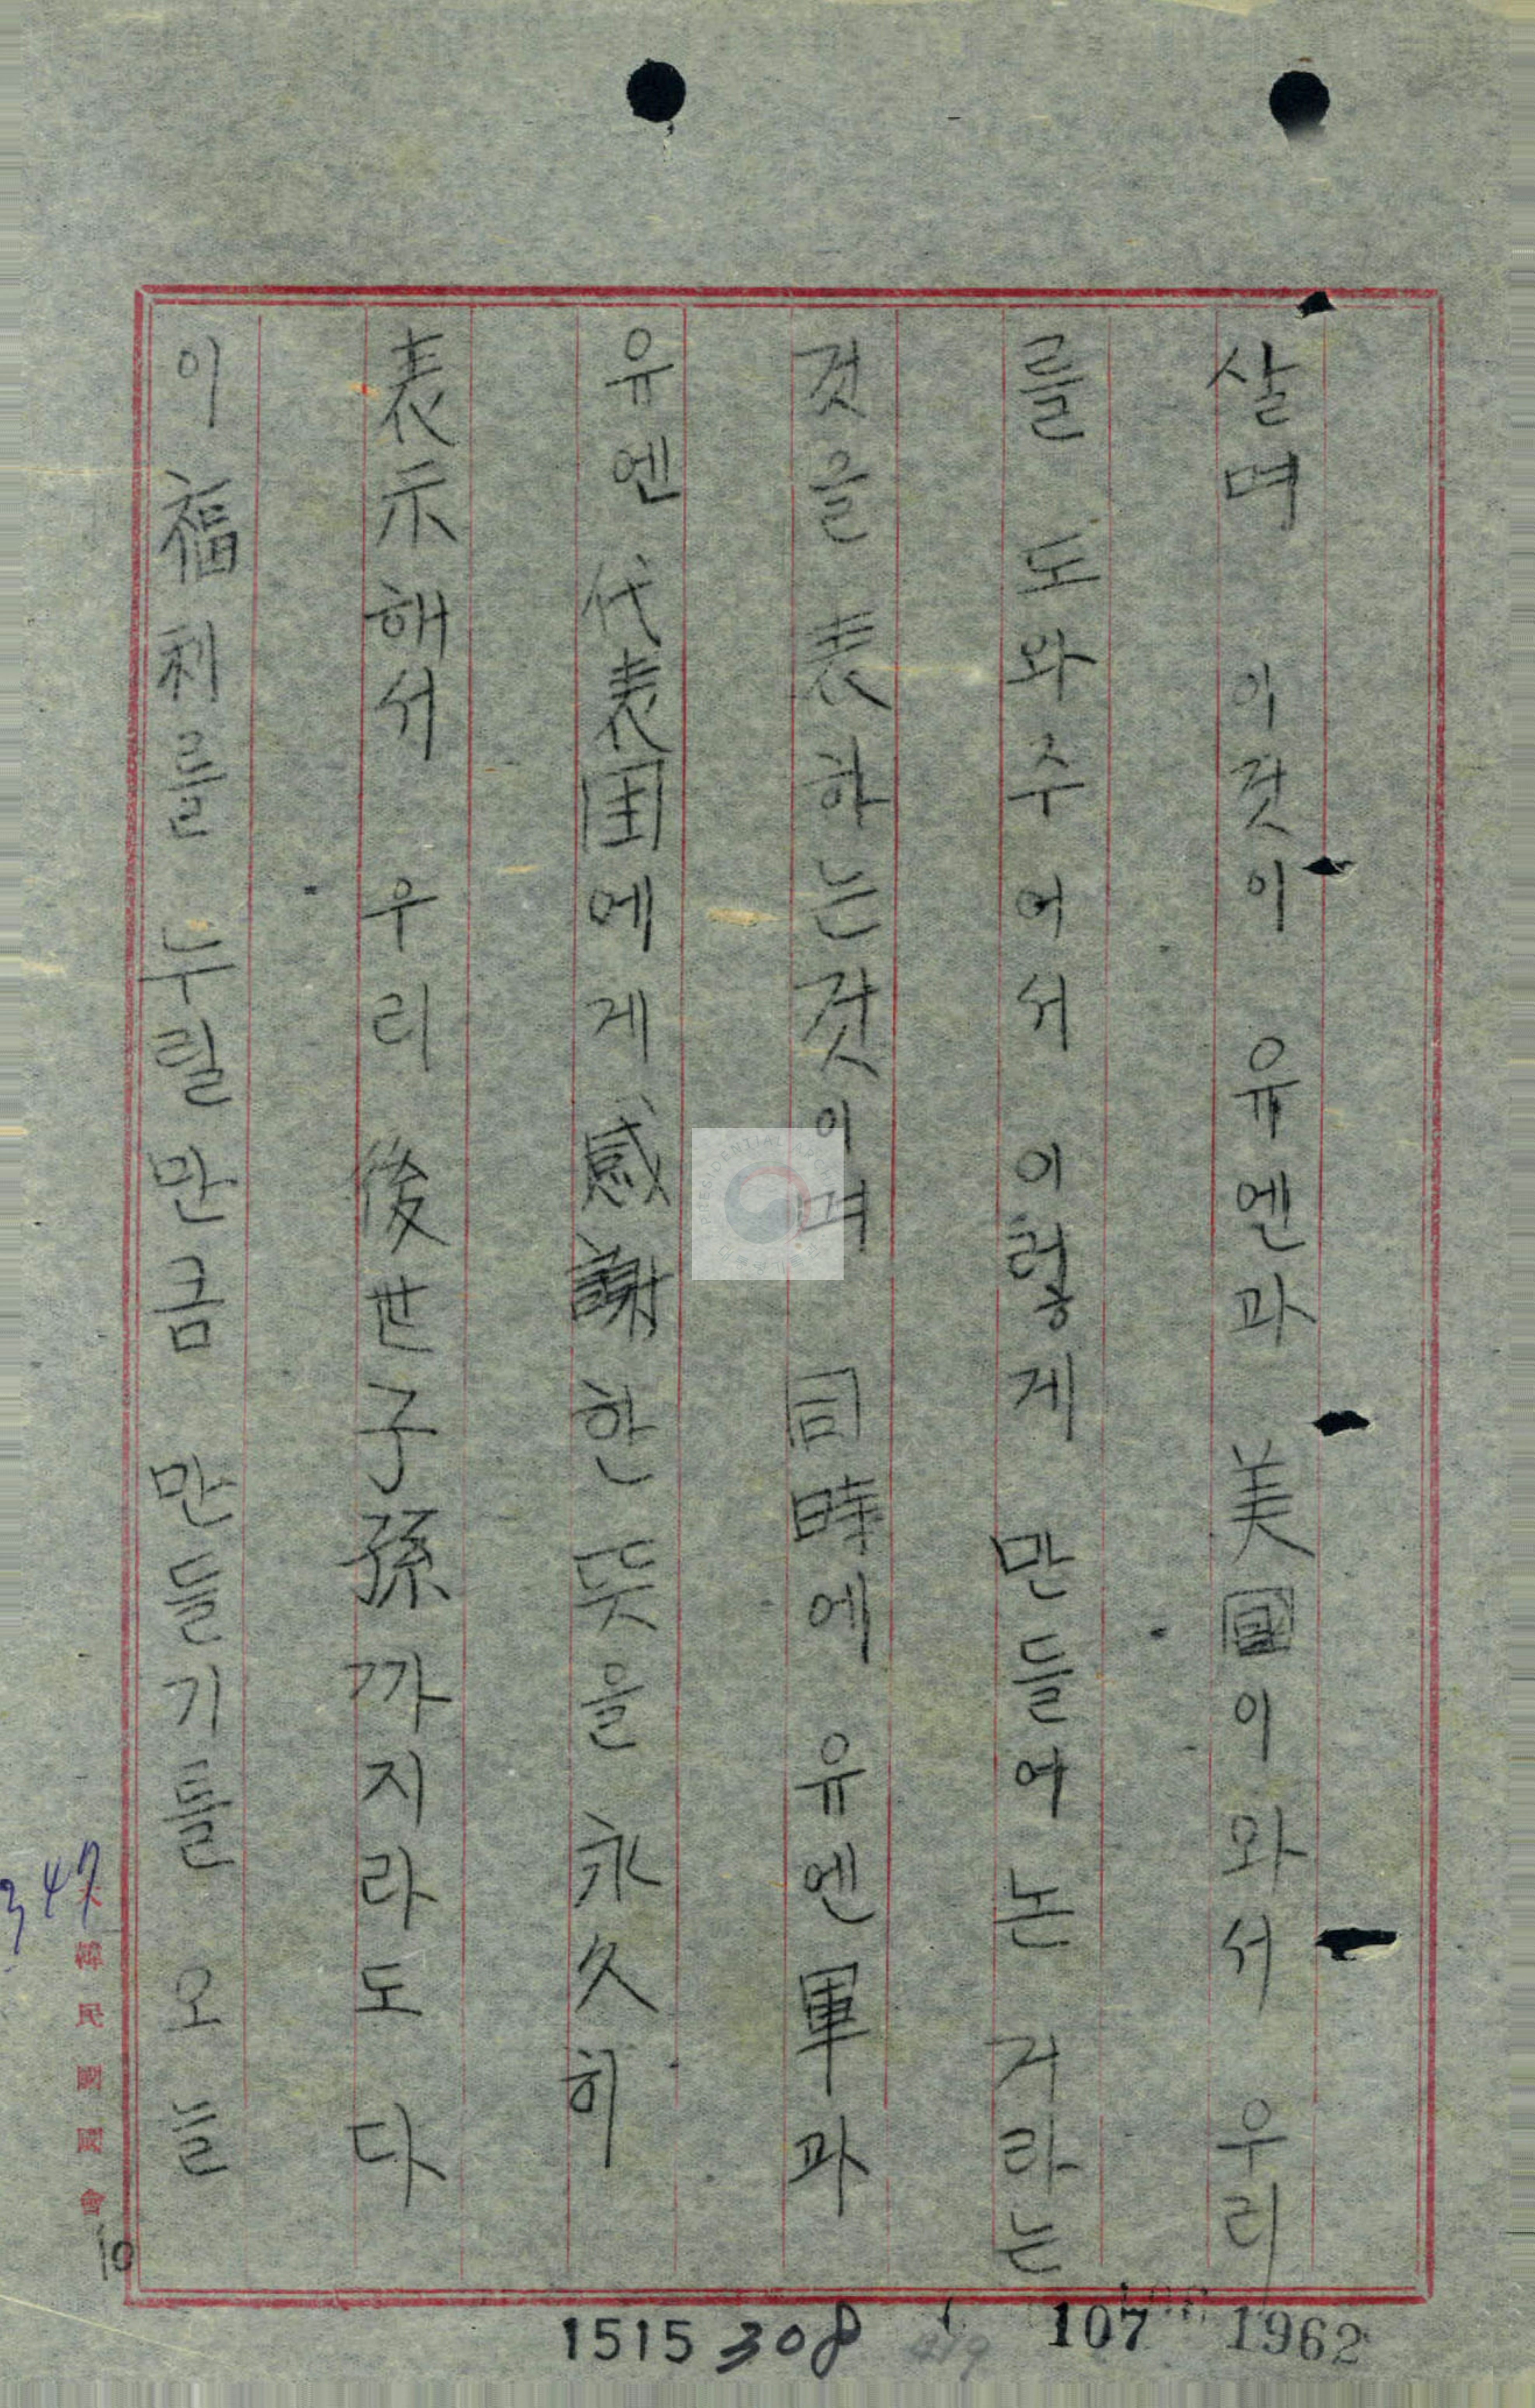 살며 이것이 유엔과 美國이 와서 우리
를 도와주어서 이렇게 만들어논 거라는
것을 表하는것이며 同時에 유엔軍과
유엔 代表国에게 感謝한 뜻을 永久히
表示해서 우리 後世子孫까지라도 다
이 福利를 누릴만큼 만들기들 오늘
347
韓民國國會
10
1515 308 107 1962